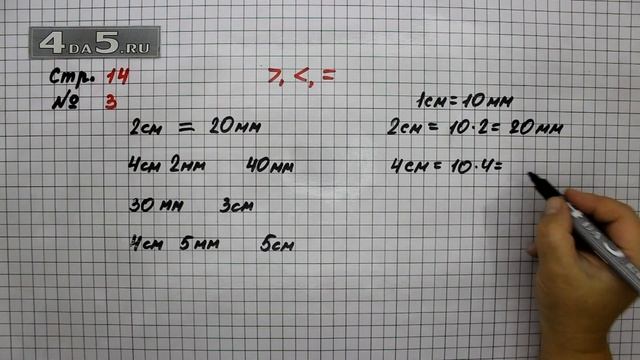 4DA5.RU
Стр. 14
№ 3
>, <, =
2см = 20мм
4см 2мм 40мм
30мм 3см
4см 5мм 5см
1см = 10мм
2см = 10·2 = 20мм
4см = 10·4 =